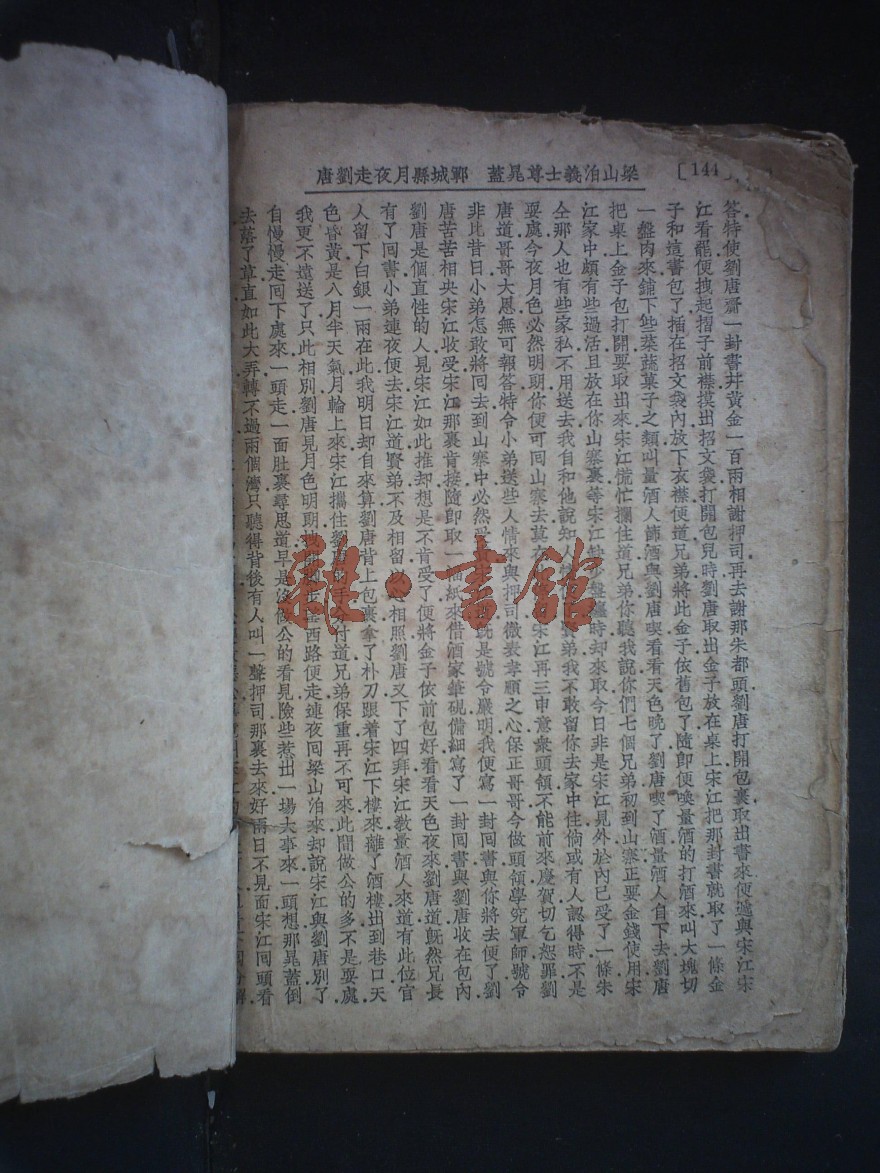 [144]
梁山泊義士尊晁蓋　鄆城縣月夜走劉唐
答特使劉唐齎一封書幷黃金一百兩相謝押司再去謝那朱都頭劉唐打開包裹取出書來便遞與宋江宋
江看罷便拽起摺子前襟摸出招文袋打開包兒時劉唐取出金子放在桌上宋江把那封書就取了一條金
子和這書包了插在招文袋內放下衣襟便道兄弟將此金子依舊包了隨即便喚量酒的打酒來叫大塊切
一盤肉來鋪下些菜蔬菓子之類叫量酒人篩酒與劉唐喫看看天色晚了劉唐喫了酒量酒人自下去劉唐
把桌上金子包打開要取出來宋江慌忙攔住道兄弟你聽我說你們七個兄弟初到山寨正要金錢使用宋
江家中頗有些過活且放在你山寨裏等宋江缺少盤纏時却來取今日非是宋江見外於內已受了一條朱
仝那人也有些家私不用送去我自和他說知人情賢弟我不敢留你去家中住倘或有人認得時不是
耍處今夜月色必然明朗你便可回山寨去莫在宋江再三申意衆頭領不能前來慶賀切乞恕罪劉
唐道哥哥大恩無可報答特令小弟送些人情來與押司微表孝順之心保正哥哥今做頭領學究軍師號令
非比昔日小弟怎敢將回去到山寨中必然受旣是號令嚴明我便寫一封回書與你將去便了劉
唐苦苦相央宋江收受宋江那裏肯接隨卽取一幅紙來借酒家筆硯備細寫了一封回書與劉唐收在包內
劉唐是個直性的人見宋江如此推却想是不肯受了便將金子依前包好看看天色夜來劉唐道旣然兄長
有了回書小弟連夜便去宋江道賢弟不及相留以相照劉唐又下了四拜宋江教量酒人來道有此位官
人留下白銀一兩在此我明日却自來算劉唐背上包裹拿了朴刀跟着宋江下樓來離了酒樓出到巷口天
色昏黃是八月半天氣月輪上來宋江攜住劉唐的手分付道兄弟保重再不可來此間做公的多不是耍處
我更不遠送了只此相別劉唐見月色明朗西路便走連夜回梁山泊來却說宋江與劉唐別了
自慢慢走回下處來一頭走一面肚裏尋思道早是沒做公的看見險些惹出一場大事來一頭想那晁蓋倒
去落了草直如此大弄轉不過兩個灣只聽得背後有人叫一聲押司那裏去來好兩日不見面宋江回頭看
雜·書館